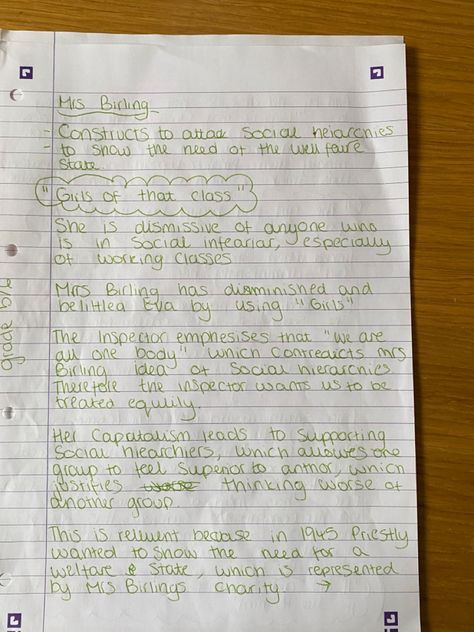 Mrs Birling
- Constructs to attac Social heiarchies
- to show the need of the well faire
state.
"Girls of that class"
She is dismissive of anyone who
is in Social infeariar, especially
of working classes
Mrs Birling has disminished and
belittled Eva by using "Girls"
The Inspector emphesises that "we are
all one body" which contredicts mrs
Birling idea of Social hierarchies
Therefore the inspector wants us to be
treated equily.
Her Capatalism leads to supporting
Social hiearchiers, which allowes one
group to feel superior to anthor, which
justifies worse thinking worse of
another group.
This is relivent because in 1945 Priestly
wanted to show the need for a
welfare & State, which is represented
by Mrs Birlings charity. →
grade 5/6